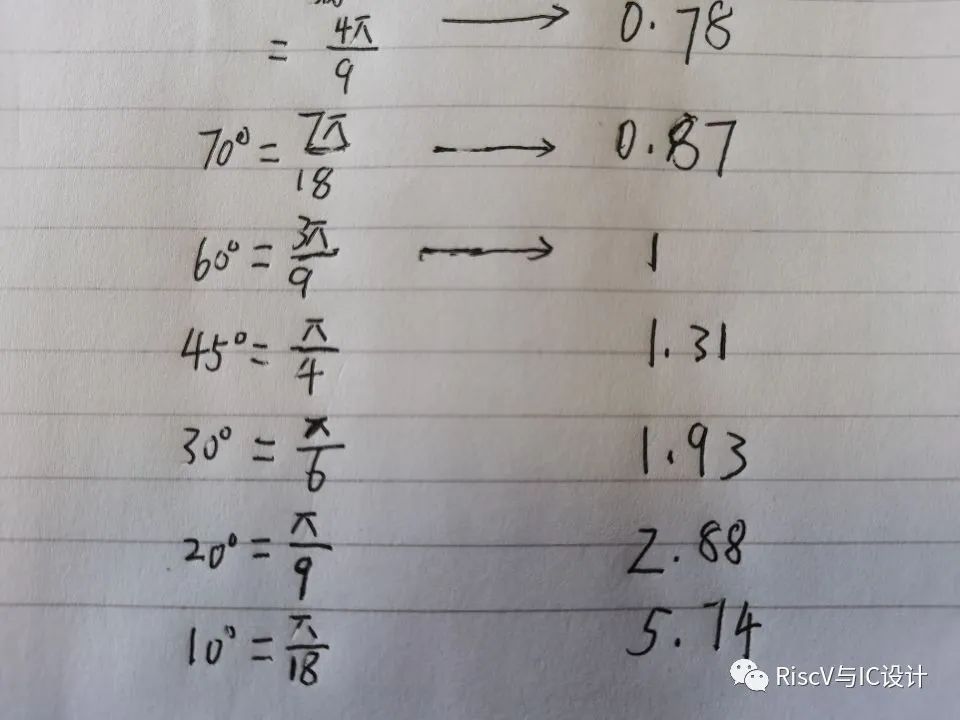 = 4π/9 → 0.78
70° = 7π/18 → 0.87
60° = 3π/9 → 1
45° = π/4 1.31
30° = π/6 1.93
20° = π/9 2.88
10° = π/18 5.74
RiscV与IC设计